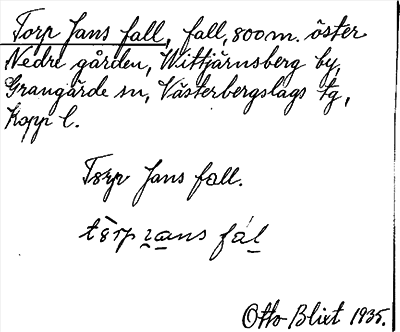 Torp Jans fall, fall, 800 m. öster
Nedre gården, Wittjärnsberg by,
Grangärde sn, Västerbergslags tg,
Kopp l.
Torp Jans fall.
Otto Blixt 1935.